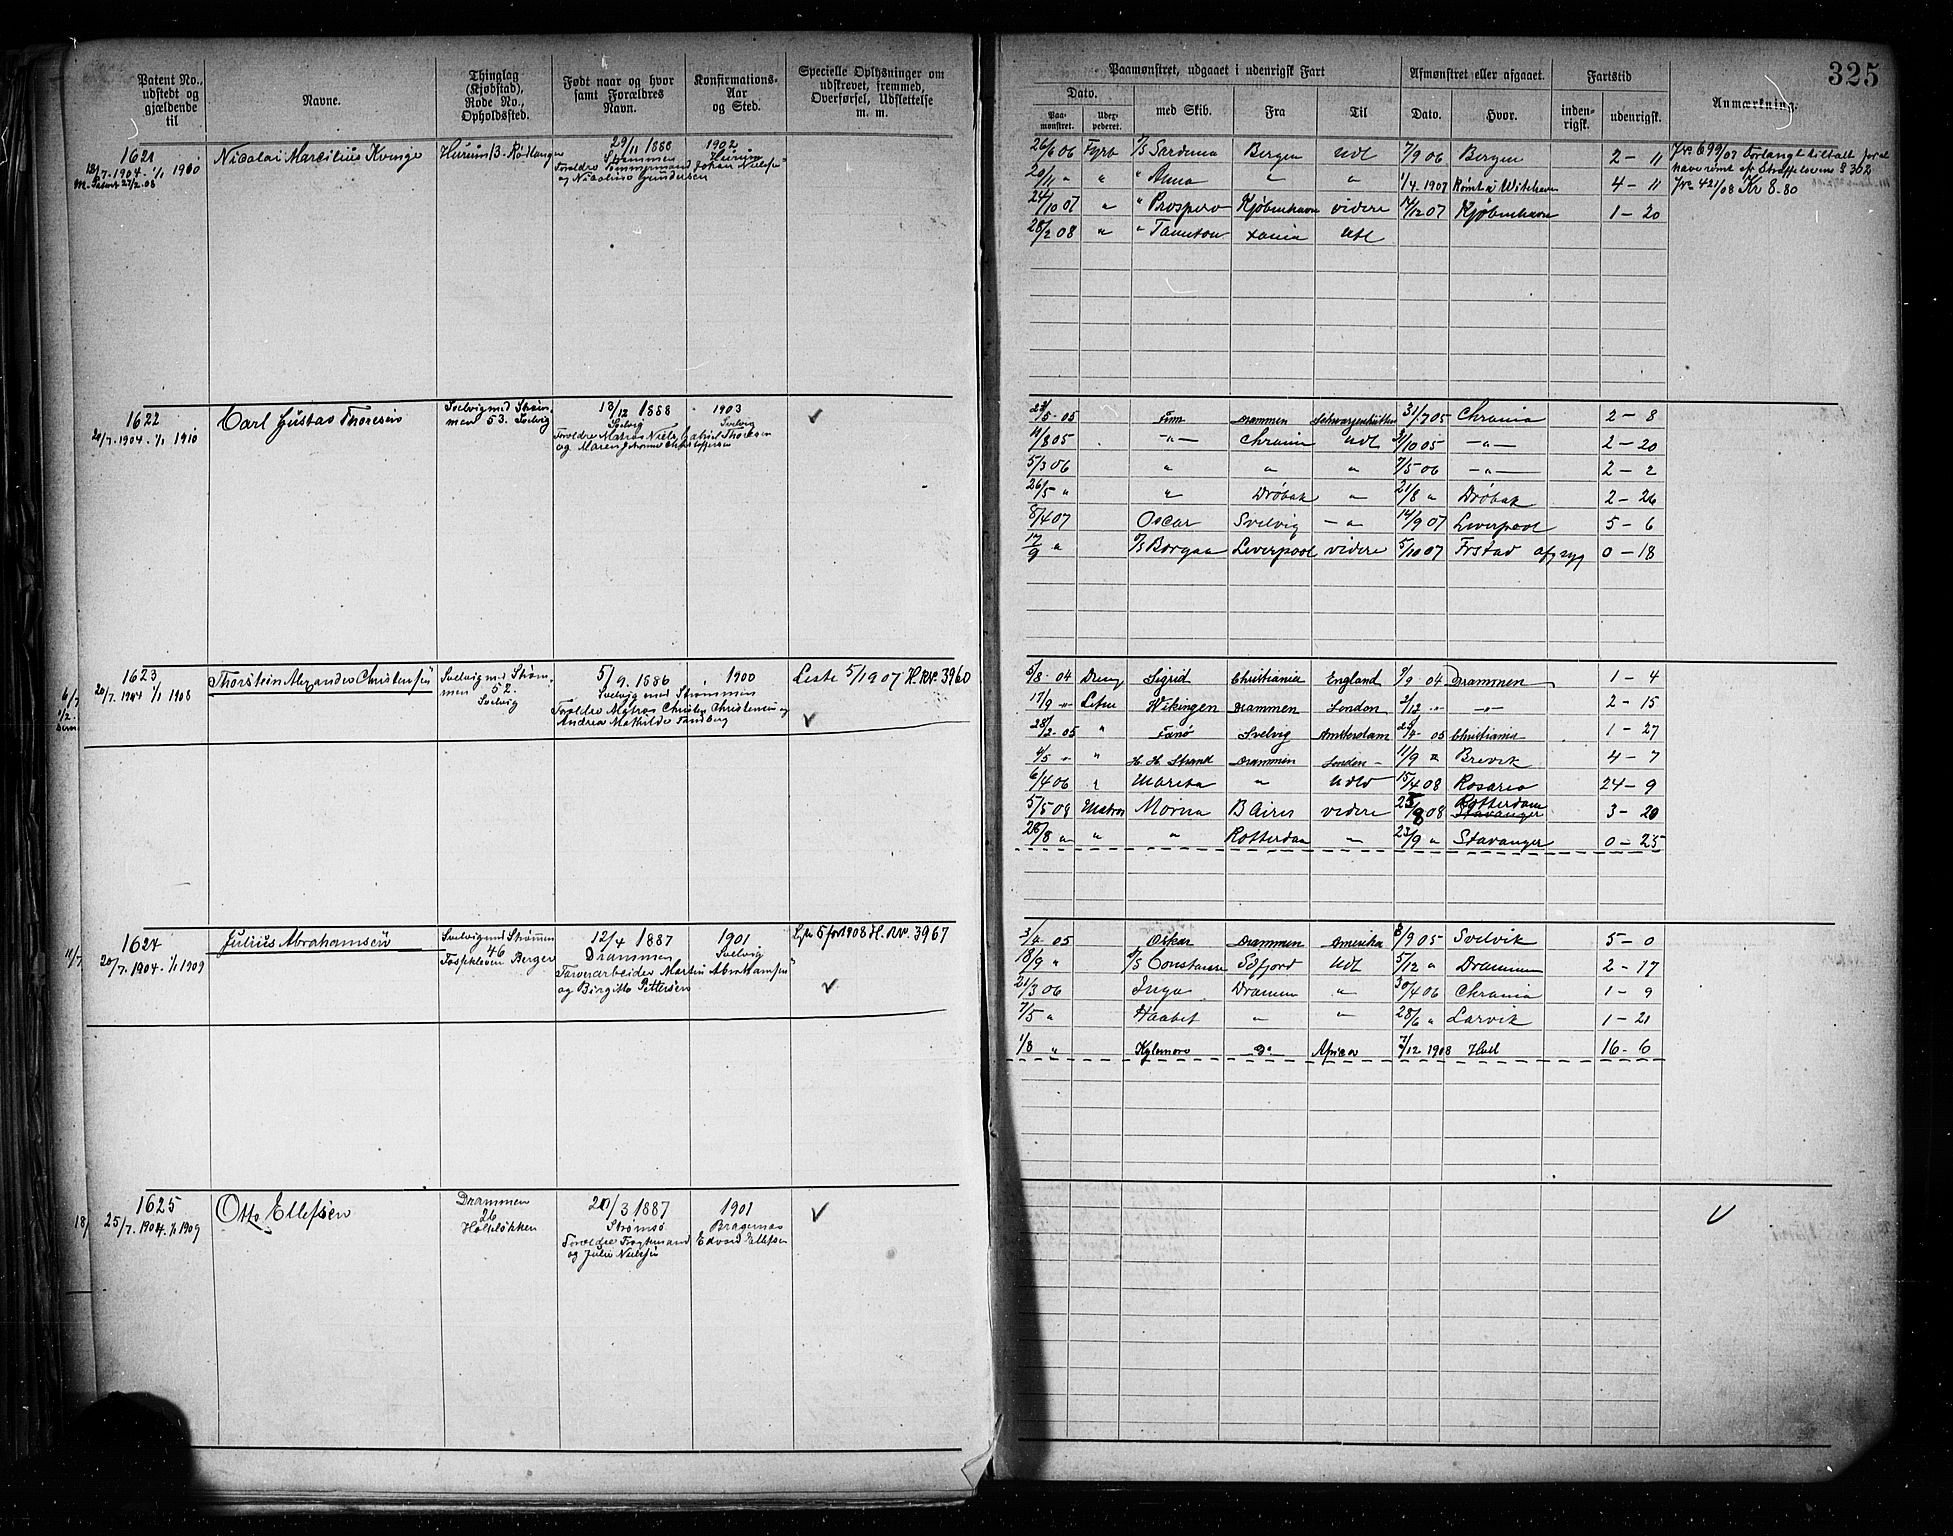 325
Patent No., udstedt og gjældende til
Navne.
Thinglag (Kjøbstad), Rode No., Opholdssted.
Født naar og hvor samt Forældres Navn.
Konfirmations-Aar og Sted.
Specielle Oplysninger om udskrevet, fremmed, Overførsel, Udslettelse m. m.
Paamønstret, udgaaet i udenrigsk Fart
Afmønstret eller afgaaet.
Fartstid
Anmærkning.
Dato.
Paa-mønstret.
Uder-pederet.
med Skib.
Fra
Til
Dato.
Hvor.
inden-rigsk.
udenrigsk.
1621
18/7. 1904. 1/1 1910
M. Patent 27/2 08
Nicolai Marcilius Kvinge
Hurum 13. Rødtangen
29/11 1888
Strømmen
1902
Hurum
Forældre Tømmermand Johan Nielsen
og Nicoline Gundersen
26/6 06 Fyrb D/S Sardinia Bergen Udl 7/9 06 Bergen 2 - 11
20/11 " " " Anna " " 1/4. 1907 Rømt i Witehaven 4 - 11
24/10 07 " " Prospero Kjøbenhavn videre 17/12 07 Kjøbenhavn 1 - 20
28/2 08 " " Taunton xania Udl
Jr 699/07 Forlangt tiltalt for at
have rømt eft Straffelovens § 302
Jr 421/08 Kr 8.80
1622
20/7. 1904. 1/1 1910
Carl Gustav Thoresen
Svelvig med Strøm-
men 53. Svelvig
13/12 1888
Svelvig
1903
Svelvig
Forældre Matros Niels Gabriel Thoresen
og Maren Johanne Christoffersen
23/5 - 05 Finn Drammen Schwarzenhütten 31/7 05 Chrania 2 - 8
11/8 05 -"- Chrania Udl 31/10 05 -"- 2 - 20
5/3 06 " " " 7/5 06 -"- 2 - 2
26/5 " " Drøbak " 21/8 " Drøbak 2 - 26
8/4 07 Oscar Svelvig -" 14/9 07 Liverpool 5 - 6
17/9 " D/S Borgaa Liverpool videre 5/10 07 Frstad af syg 0 - 18
1623
20/7. 1904 1/1 1908
Thorstein Alexander Christensen
Svelvig med Strøm-
men 52.
Svelvig
5/9. 1886
Svelvig med Strømmen
1900
Forældre Matros Christen Christensen og
Andrea Mathilde Sandberg
Liste 5/1907 H. No. 3960
5/8 - 04 Dreng Sigrid Christiania England 9/9 04 Drammen 1 - 4
17/9 " Letm Wikingen Drammen London 2/12 " -"- 2 - 15
28/2 - 05 " Fanø Svelvig Amsterdam 25/4 05 Christiania 1 - 27
4/5 " " H. H. Strand Drammen London - 11/9 " Brevik 4 - 7
6/4 06 " Marita " Udld 15/4 08 Rosario 24 - 9
5/5 08 Matros Morna B Aires videre 25/8 08 Rotterdam 3 - 20
28/8 " " " Rotterdam - 23/9 " Stavanger 0 - 25
1624
20/7. 1904. 1/1 1909
Julius Abrahamsen
Svelvig med Strømmen
46
Fossekleven Berger
12/4 1887
Drammen
1901
Svelvig
Farverarbeider Martin Abrahamsen
og Birgitte Pettersen
Lste 5 for 1908 H. No. 3967
3/4 05 Oskar Drammen Amerika 3/9 05 Svelvik 5 - 0
18/9 " D/S Constanse Sdfjord Udl 5/12 " Drammen 2 - 17
21/3 06 Inga Drammen " 30/4 06 Chrania 1 - 9
7/5 " Haabet " " 28/6 " Larvik 1 - 21
1/8 " Kylemore Do Africa 7/12 1908 Hull 16 - 6
1625
25/7. 1904. 1/1 1909
Otto Ellefsen
Drammen
26
Holteløkken
20/3 1887
Strømsø
1901
Bragernæs
Forældre Fragtemand Edvard Ellefsen
og Julie Nielsen